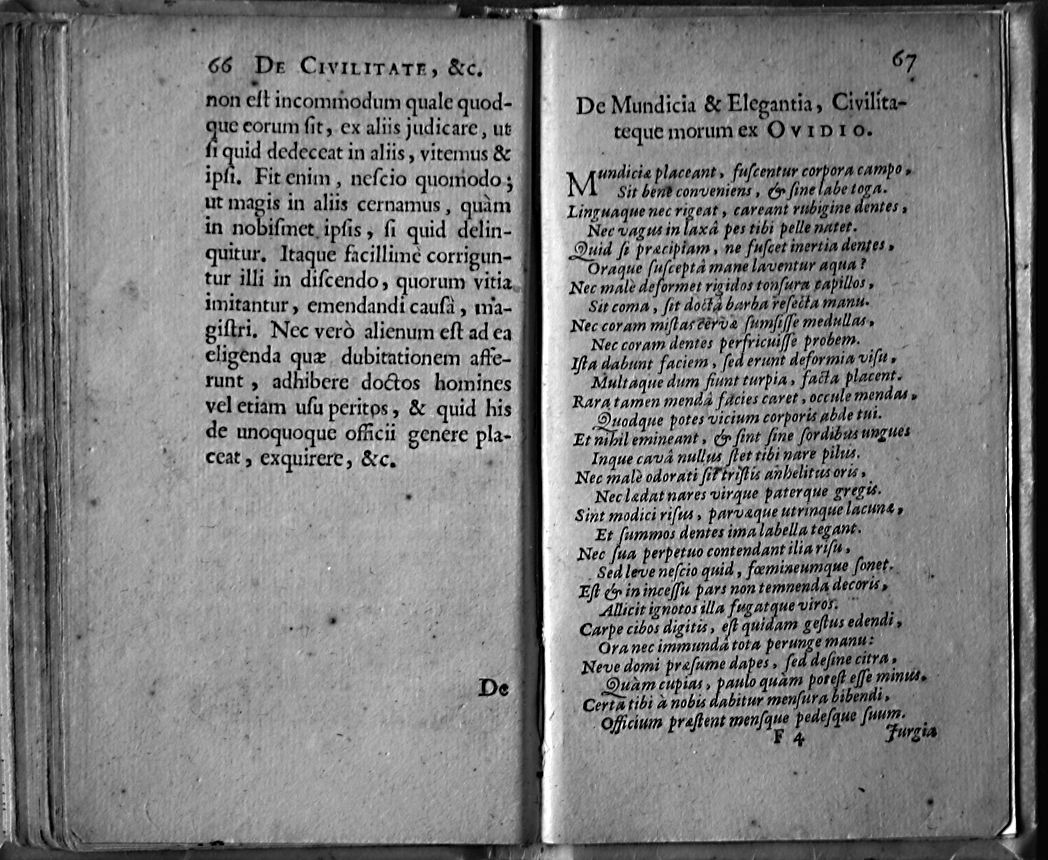 66 DE CIVILITATE, &c.
non eſt incommodum quale quod-
que eorum ſit, ex aliis judicare, ut
ſi quid dedeceat in aliis, vitemus &
ipſi. Fit enim, neſcio quomodo;
ut magis in aliis cernamus, quàm
in nobiſmet ipſis, ſi quid delin-
quitur. Itaque facillimè corrigun-
tur illi in diſcendo, quorum vitia
imitantur, emendandi cauſà, ma-
giſtri. Nec verò alienum eſt ad ea
eligenda quæ dubitationem affe-
runt, adhibere doctos homines
vel etiam uſu peritos, & quid his
de unoquoque officii genere pla-
ceat, exquirere, &c.
De
67
De Mundicia & Elegantia, Civilita-
teque morum ex OVIDIO.
Mundiciæ placeant, fuſcentur corpora campo,
Sit benè conveniens, & ſine labe toga.
Linguaque nec rigeat, careant rubigine dentes,
Nec vagus in laxâ pes tibi pelle natet.
Quid ſi præcipiam, ne fuſcet inertia dentes,
Oraque ſuſceptâ mane laventur aqua?
Nec malè deformet rigidos tonſura capillos,
Sit coma, ſit doctâ barba reſecta manu.
Nec coram miſtas cervæ ſumſiſſe medullas,
Nec coram dentes perfricuiſſe probem.
Iſta dabunt faciem, ſed erunt deformia viſu,
Multaque dum fiunt turpia, facta placent.
Rara tamen mendâ facies caret, occule mendas,
Quodque potes vicium corporis abde tui.
Et nihil emineant, & ſint ſine ſordibus ungues
Inque cavâ nullus ſtet tibi nare pilus.
Nec malè odorati ſit triſtis anhelitus oris,
Nec lædat nares virque paterque gregis.
Sint modici riſus, parvæque utrinque lacunæ,
Et ſummos dentes ima labella tegant.
Nec ſua perpetuo contendant ilia riſu,
Sed leve neſcio quid, fœmineumque ſonet.
Eſt & in inceſſu pars non temnenda decoris,
Allicit ignotos illa fugatque viros.
Carpe cibos digitis, eſt quidam geſtus edendi,
Ora nec immundâ tota perunge manu:
Neve domi præſume dapes, ſed deſine citra,
Quàm cupias, paulo quàm poteſt eſſe minus.
Certa tibi à nobis dabitur menſura bibendi,
Officium præſtent menſque pedeſque ſuum.
F 4 Jurgia